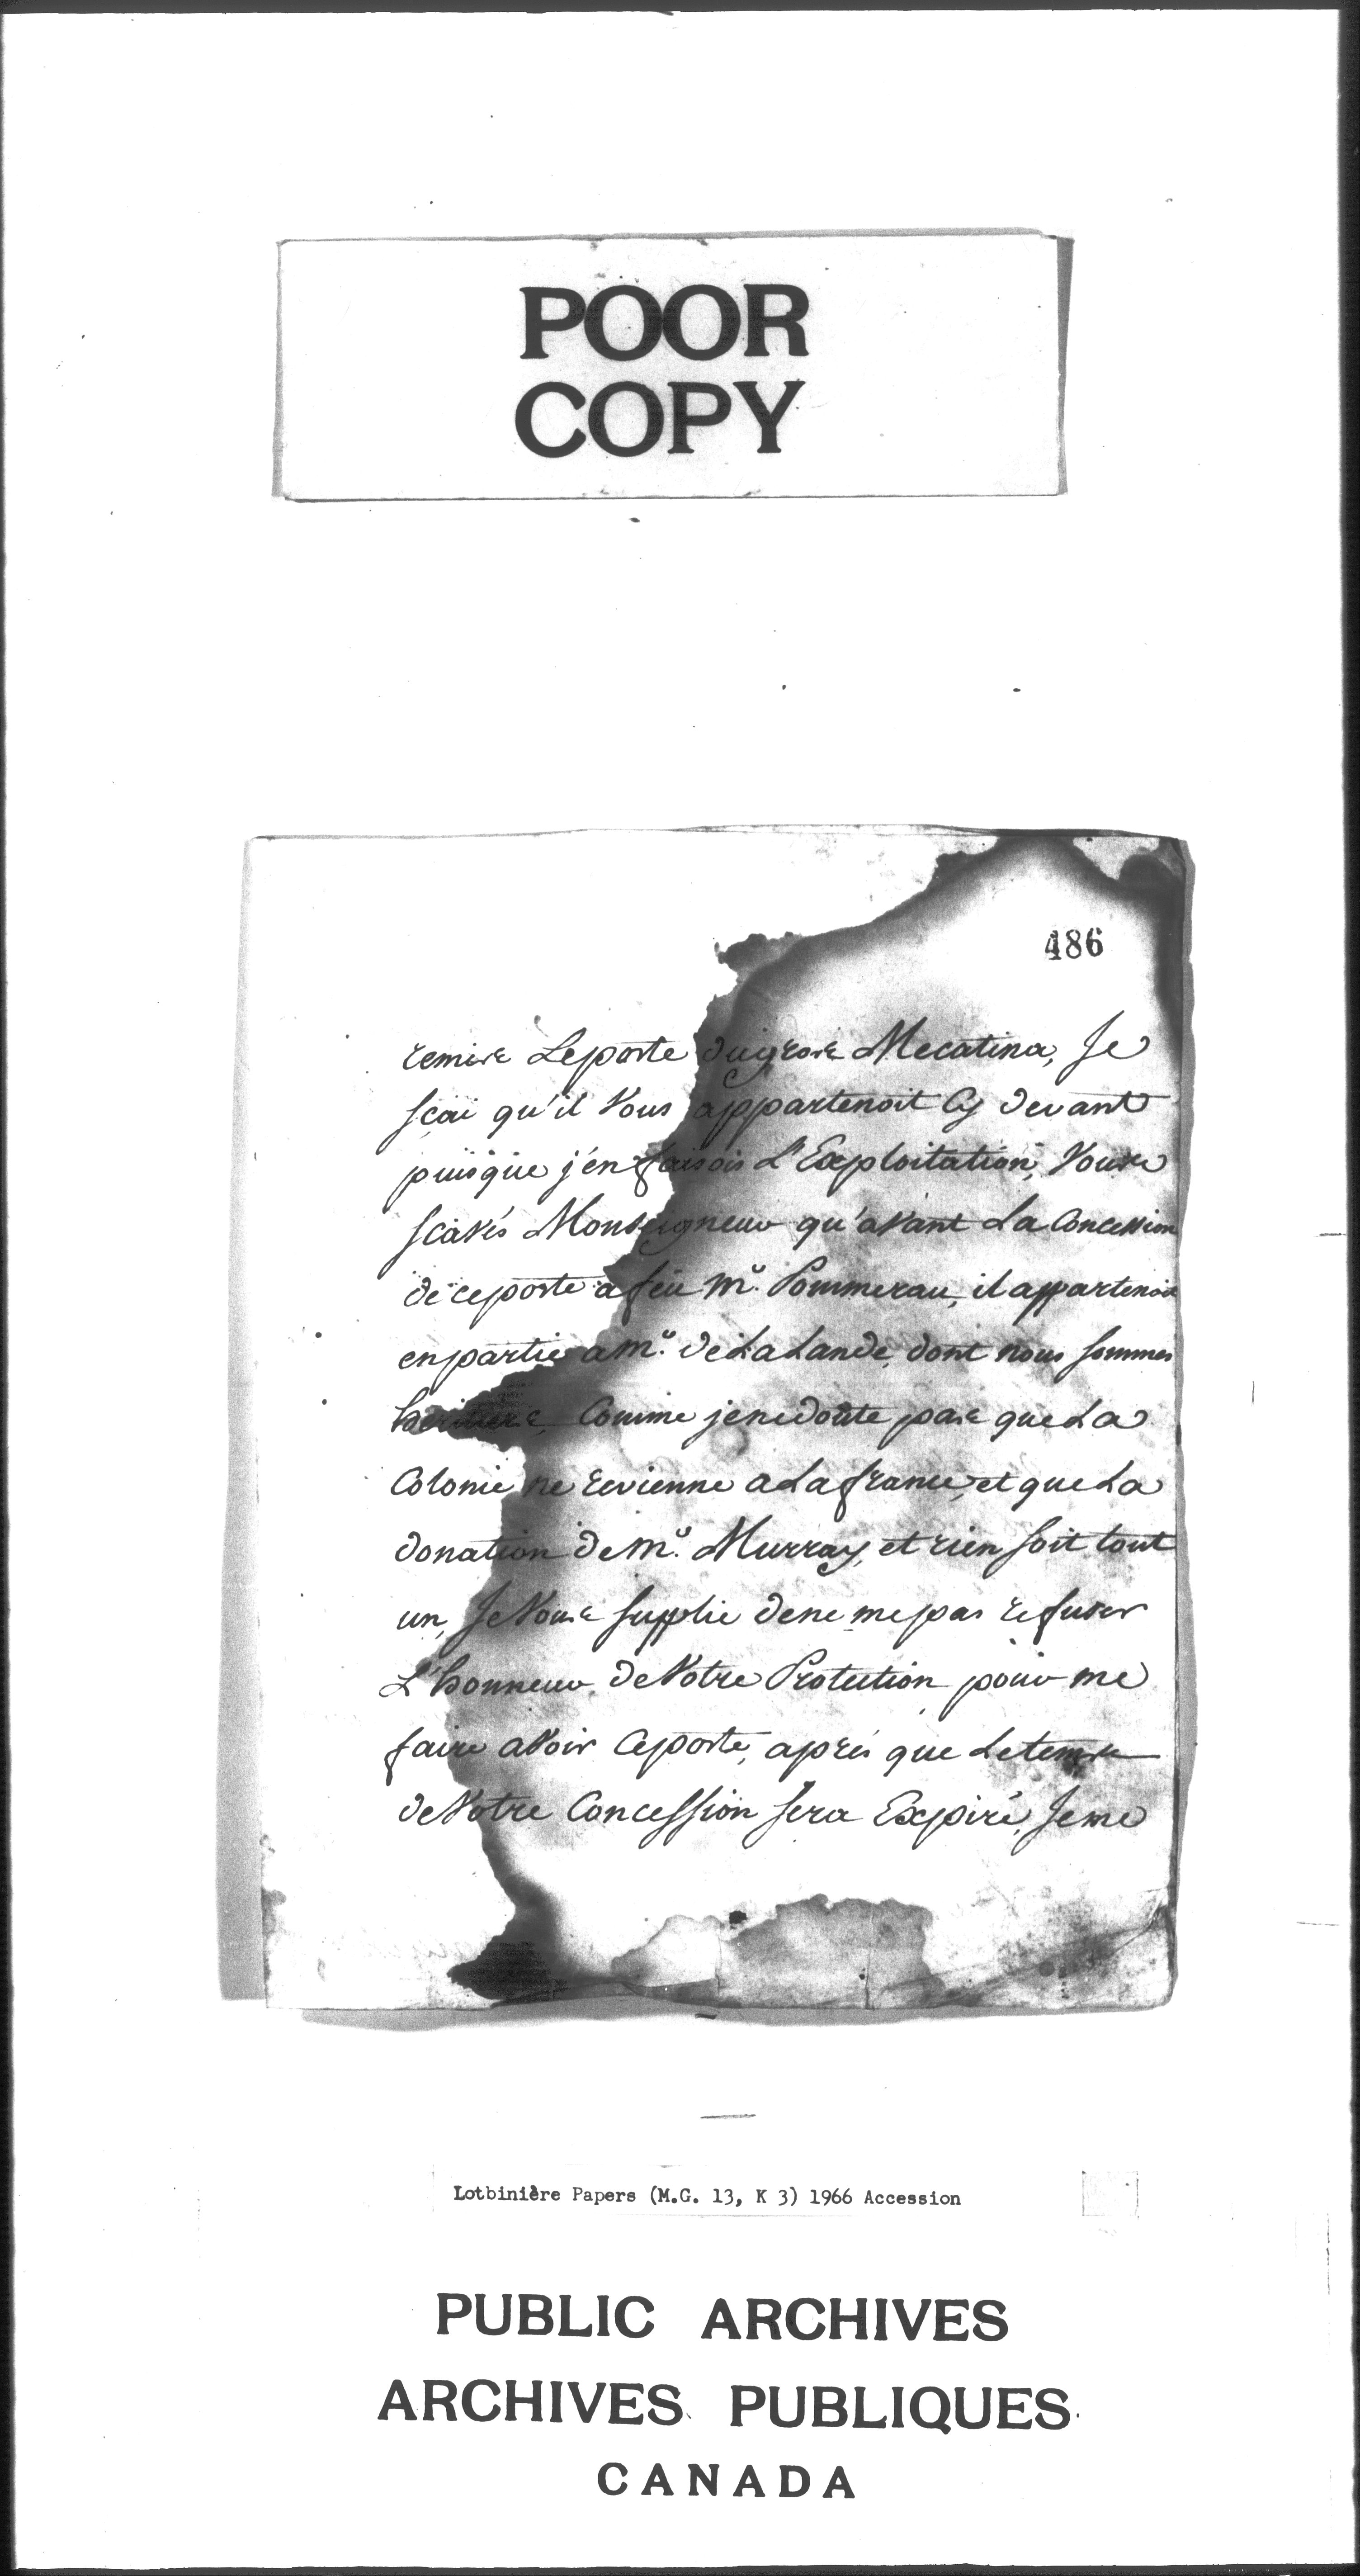 POOR
COPY
486
remise Leposte dugros Mecatina, Je
sçai qu'il Vous appartenoit Cy devant
puisque j'en faisois L'Exploitation, Vous
scavés Monseigneur qu'avant La Concession
de ceposte a feu mr. Pommerau, il appartenoit
enpartie a mr. de La Lande, dont nous sommes
heritiers, Comme jenedoute pas que La
Colonie ne revienne a La france, et que La
donation de mr. Murray, et rien soit tout
un, Je Vous supplie dene me pas refuser
L'honneur de Votre Protection pour me
faire avoir Ceposte, aprés que Letems
de Votre Concession sera Expiré, Jeme
Lotbinière Papers (M.G. 13, K 3) 1966 Accession
PUBLIC ARCHIVES
ARCHIVES PUBLIQUES
CANADA